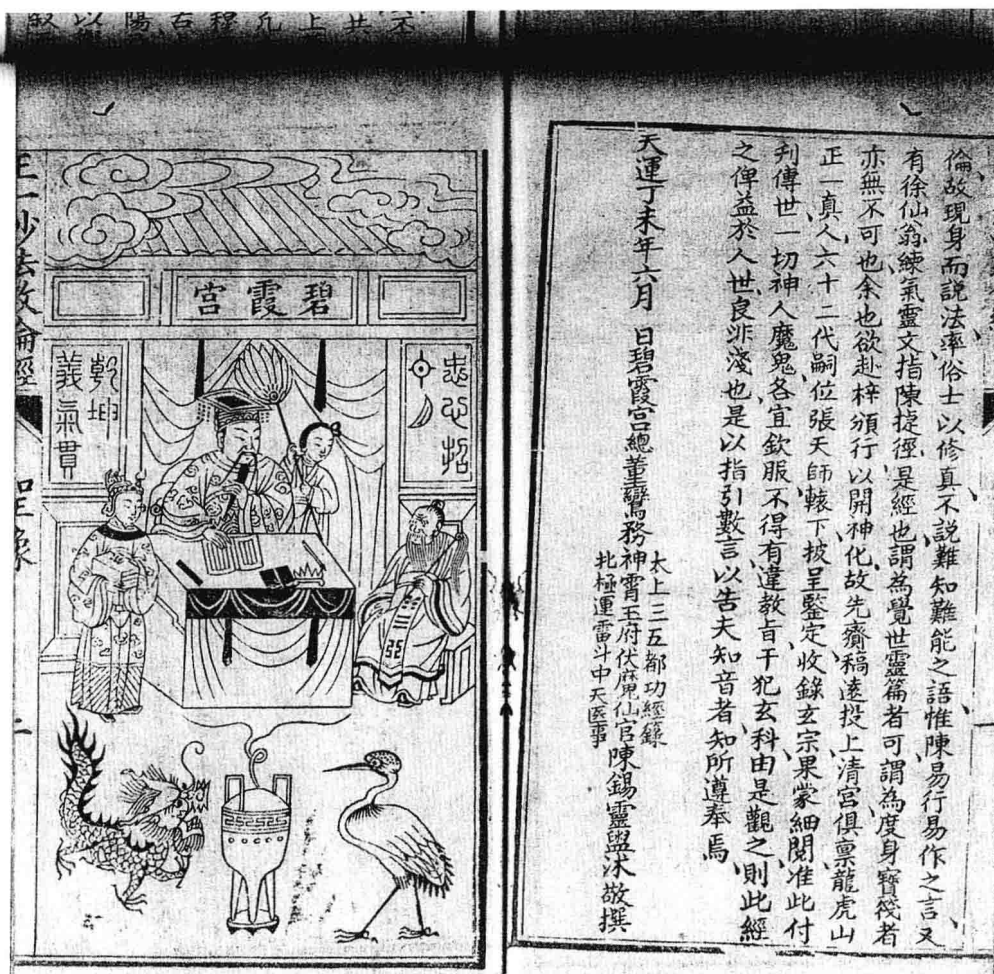 倫故現身而說法率俗士以修真不說難知難能之語惟陳易行易作之言又
有徐仙翁練氣靈文指陳捷徑是經也謂為覺世靈篇者可謂為度身寶筏者
亦無不可也余也欲赴梓頒行以開神化故先賫稿遠投上清宮俱禀龍虎山
正一真人六十二代嗣位張天師轅下披呈鑒定收錄玄宗果蒙細閱准此付
刋傳世一切神人魔鬼各宜欽服不得有違教旨干犯玄科由是觀之則此經
之俾益於人世良非淺也是以指引數言以告夫知音者知所遵奉焉
天運丁未年六月 日碧霞宮總董鸞務
太上三五都功經籙
神霄玉府伏魔仙官陳錫靈盥沐敬撰
北極運雷斗中天醫事
碧霞宮
忠心昭
乾坤
義氣貫
正一妙法敦倫經
聖像